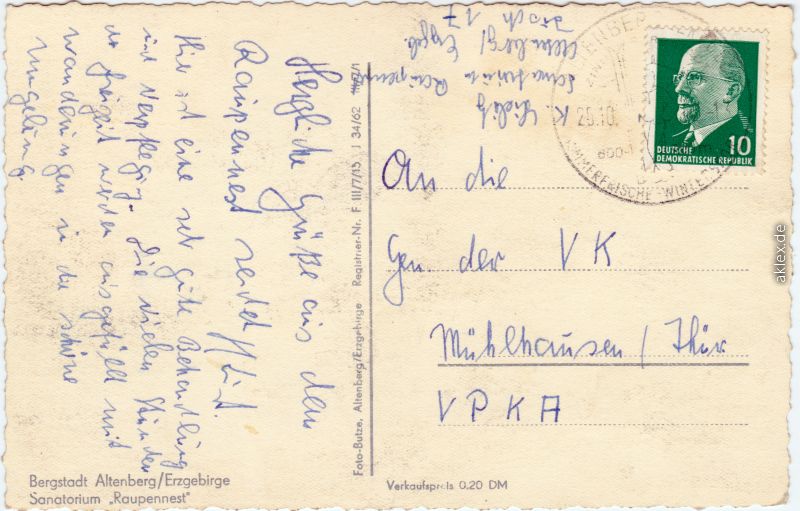 K. Lieb
Sanatorium Raupennest
Altenberg/Erzgeb.
Tisch 17
ALTENBERG
25.10.
SOMMERFRISCHE WINTERS
10
DEUTSCHE
DEMOKRATISCHE REPUBLIK
Herzliche Grüße aus dem
Raupennest sendet
Hier ist eine sehr gute Behandlung
und Verpflegung. Die vielen Stunden
der Freizeit werden ausgefüllt mit
wanderungen in die schöne
umgebung
An die
Gen. der VK
Mühlhausen/Thür
VPKA
Foto-Butze, Altenberg/Erzgebirge Registrier-Nr. F III/7/15 J 34/62
Bergstadt Altenberg/Erzgebirge
Sanatorium „Raupennest"
Verkaufspreis 0.20 DM
aklex.de